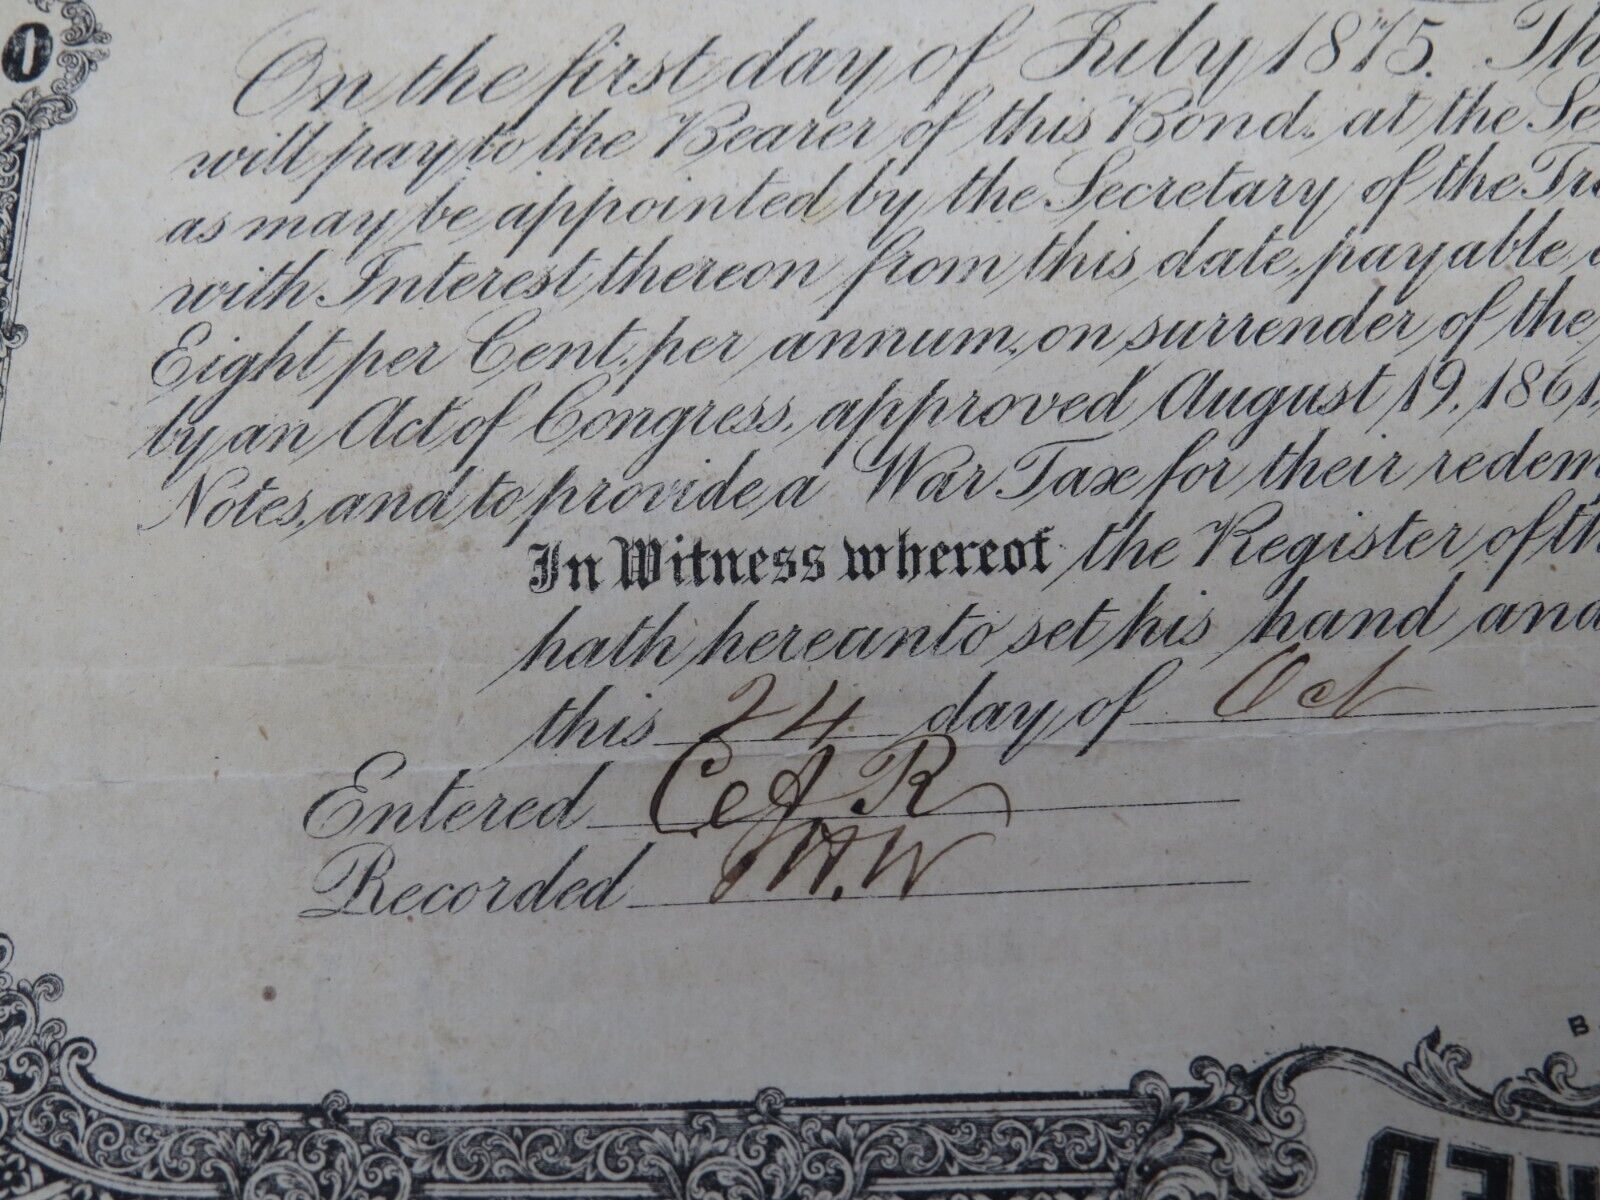 0
On the first day of July 1875. Th
will pay to the Bearer of this Bond, at the Se
as may be appointed by the Secretary of the Tre
with Interest thereon from this date, payable
Eight per Cent. per annum, on surrender of the
by an Act of Congress, approved August 19, 1861,
Notes, and to provide a War Tax for their redem
In Witness whereof the Register of th
hath hereunto set his hand and
this 24 day of Oct
Entered
Recorded
B